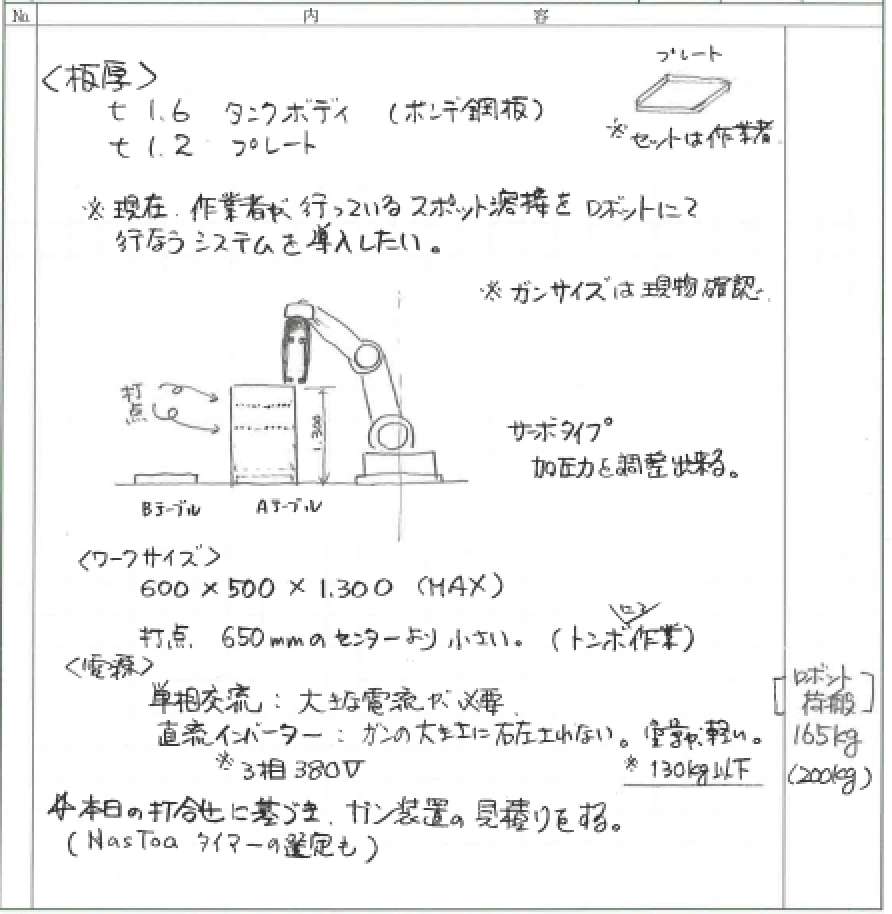 No. 内容
<板厚>
t 1.6 タンクボディ (ボンデ鋼板)
t 1.2 プレート
プレート
※セットは作業者
※現在、作業者が行っているスポット溶接をロボットにて
行なうシステムを導入したい。
※ガンサイズは現物確認
打点
1.300
Bテーブル
Aテーブル
サーボタイプ
加圧力を調整出来る。
<ワークサイズ>
600 × 500 × 1.300 (MAX)
打点 650mmのセンターより小さい。(トンボ作業)
にて
<電源>
単相交流:大きな電流が必要
直流インバーター:ガンの大きさに右左されない。重量が軽い。
※3相380V
※130kg以下
ロボット
荷搬
165kg
(200kg)
本日の打合せに基づき、ガン装置の見積りをする。
(NasToa タイマーの選定も)